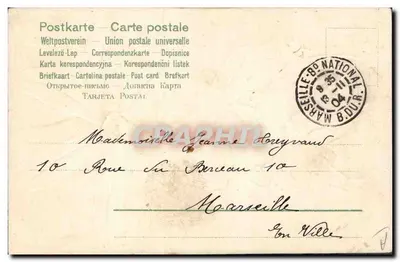 Postkarte - Carte postale
Weltpostverein - Union postale universelle
Levelező-Lap - Correspondenzkarte - Dopisnice
Karta korespondencyjna - Korespondenční lístek
Briefkaart - Cartolina postale - Post card - Brefkort
Открытое письмо - Дописна Карта
TARJETA POSTAL
MARSEILLE-Bd NATIONAL B. DU R.
11
04
Mademoiselle Jeanne
10 Rue du Berceau 10
Marseille
En Ville